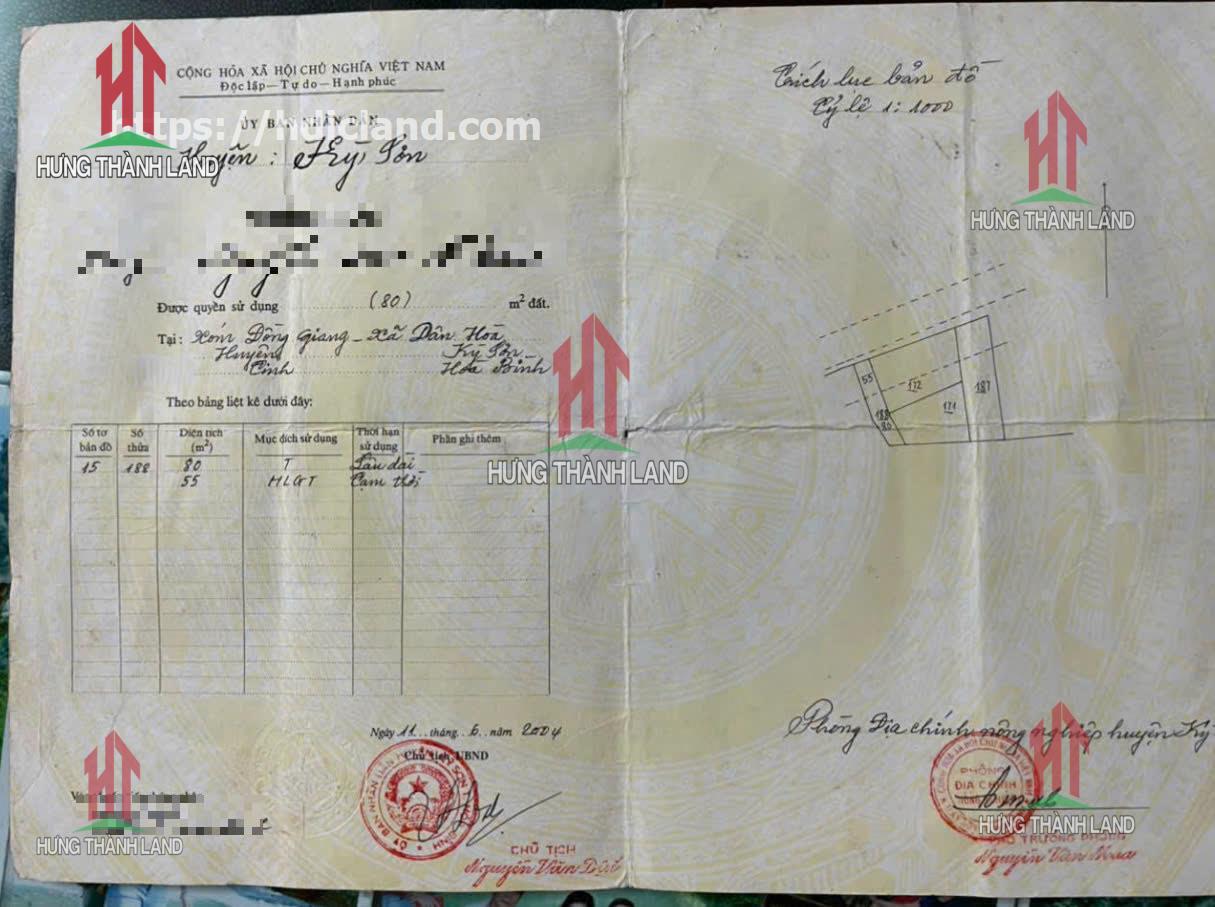 CỘNG HÒA XÃ HỘI CHỦ NGHĨA VIỆT NAM
Độc lập — Tự do — Hạnh phúc
ỦY BAN NHÂN DÂN
https://htdicland.com
Huyện: Kỳ Sơn
HƯNG THÀNH LAND
Được quyền sử dụng (80) m² đất.
Tại: Xóm Đồng Giang - Xã Dân Hoà
Huyện Kỳ Sơn
Tỉnh Hoà Bình
Theo bảng liệt kê dưới đây:
Số tơ bản đồ Số thửa Diện tích (m²) Mục đích sử dụng Thời hạn sử dụng Phần ghi thêm
15 188 80 T Lâu dài
55 HLGT Tạm thời
Ngày 11 tháng 6 năm 2004
Chủ tịch UBND
CHỦ TỊCH
Nguyễn Văn
HƯNG THÀNH LAND
Trích lục bản đồ
Tỷ lệ 1:1000
HƯNG THÀNH LAND
55
172
187
171
188
80
HƯNG THÀNH LAND
Phòng Địa chính nông nghiệp huyện Kỳ
PHÒNG
ĐỊA CHÍNH
HƯNG THÀNH LAND
PHÓ TRƯỞNG PHÒNG
Nguyễn Văn